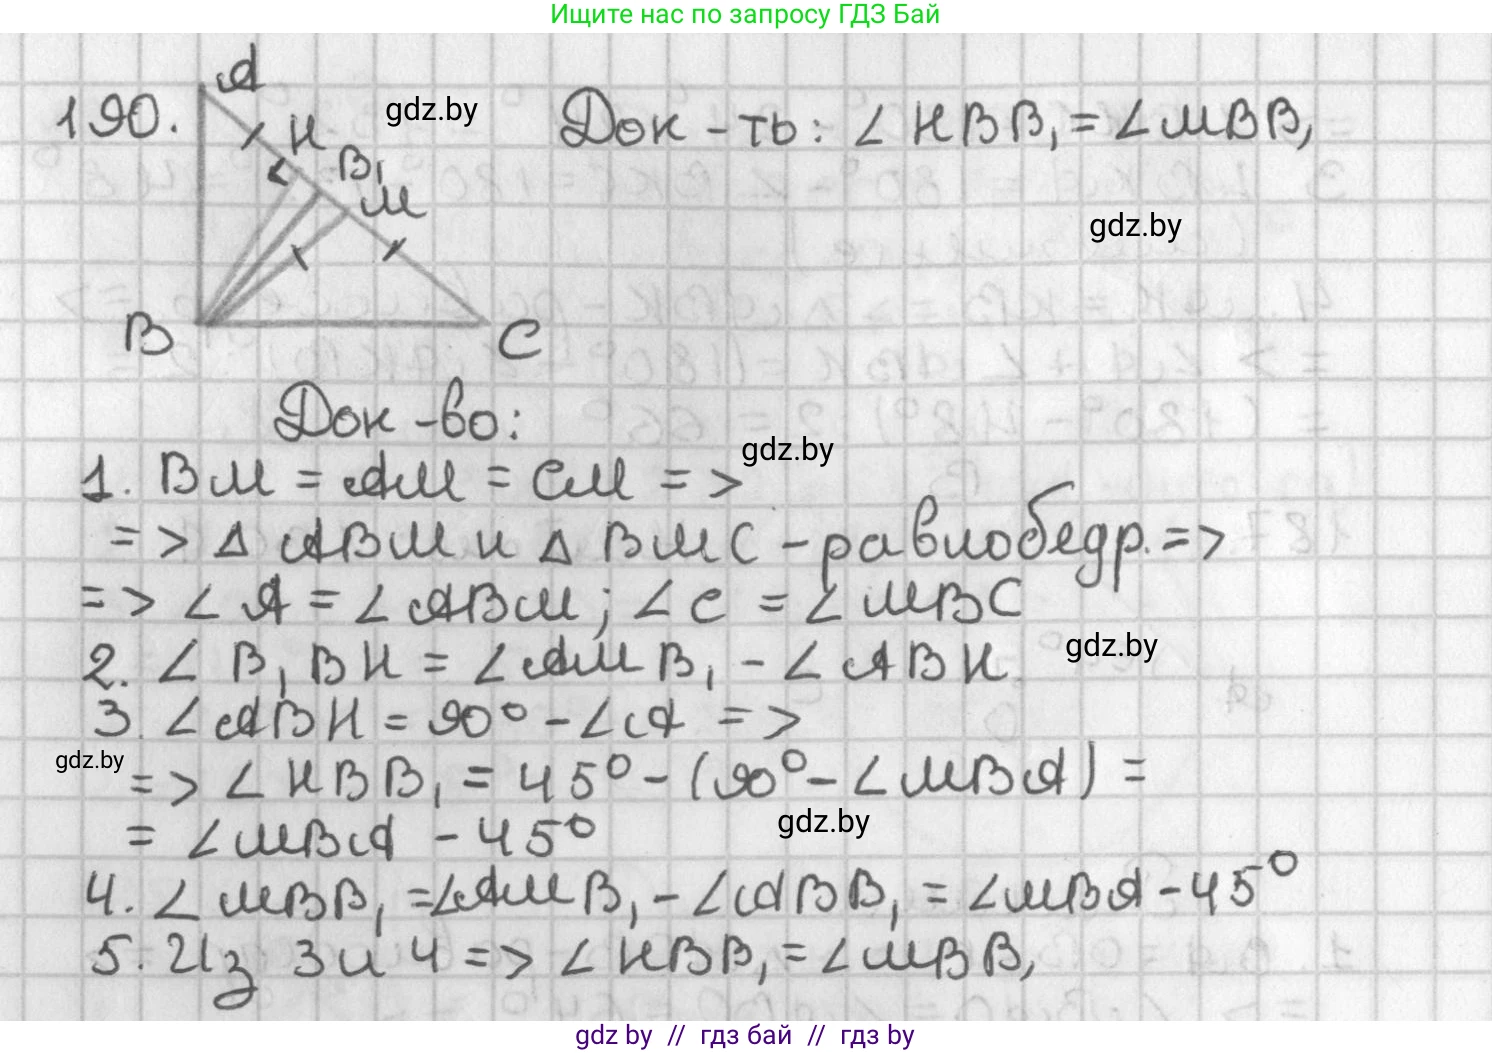 Ищите нас по запросу ГДЗ Бай
190.
A
H
B₁
M
B
C
gdz.by
Док-ть: ∠HBB₁ = ∠MBB₁
gdz.by
Док-во:
gdz.by
1. BM = AM = CM =>
=> △ ABM и △ BMC - равнобедр. =>
=> ∠A = ∠ABM; ∠C = ∠MBC
2. ∠B₁BH = ∠AMB₁ - ∠ABH
gdz.by
3. ∠ABH = 90° - ∠A =>
gdz.by
=> ∠HBB₁ = 45° - (90° - ∠MBA) =
= ∠MBA - 45°
gdz.by
4. ∠MBB₁ = ∠AMB₁ - ∠ABB₁ = ∠MBA - 45°
5. Из 3 и 4 => ∠HBB₁ = ∠MBB₁
gdz.by // гдз бай // гдз by